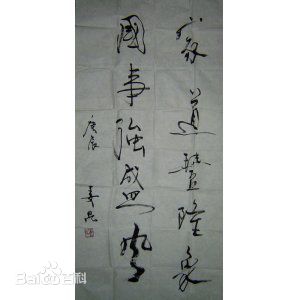 家道隆象
國事強盛風
庚辰
姜昆
Baidu百科